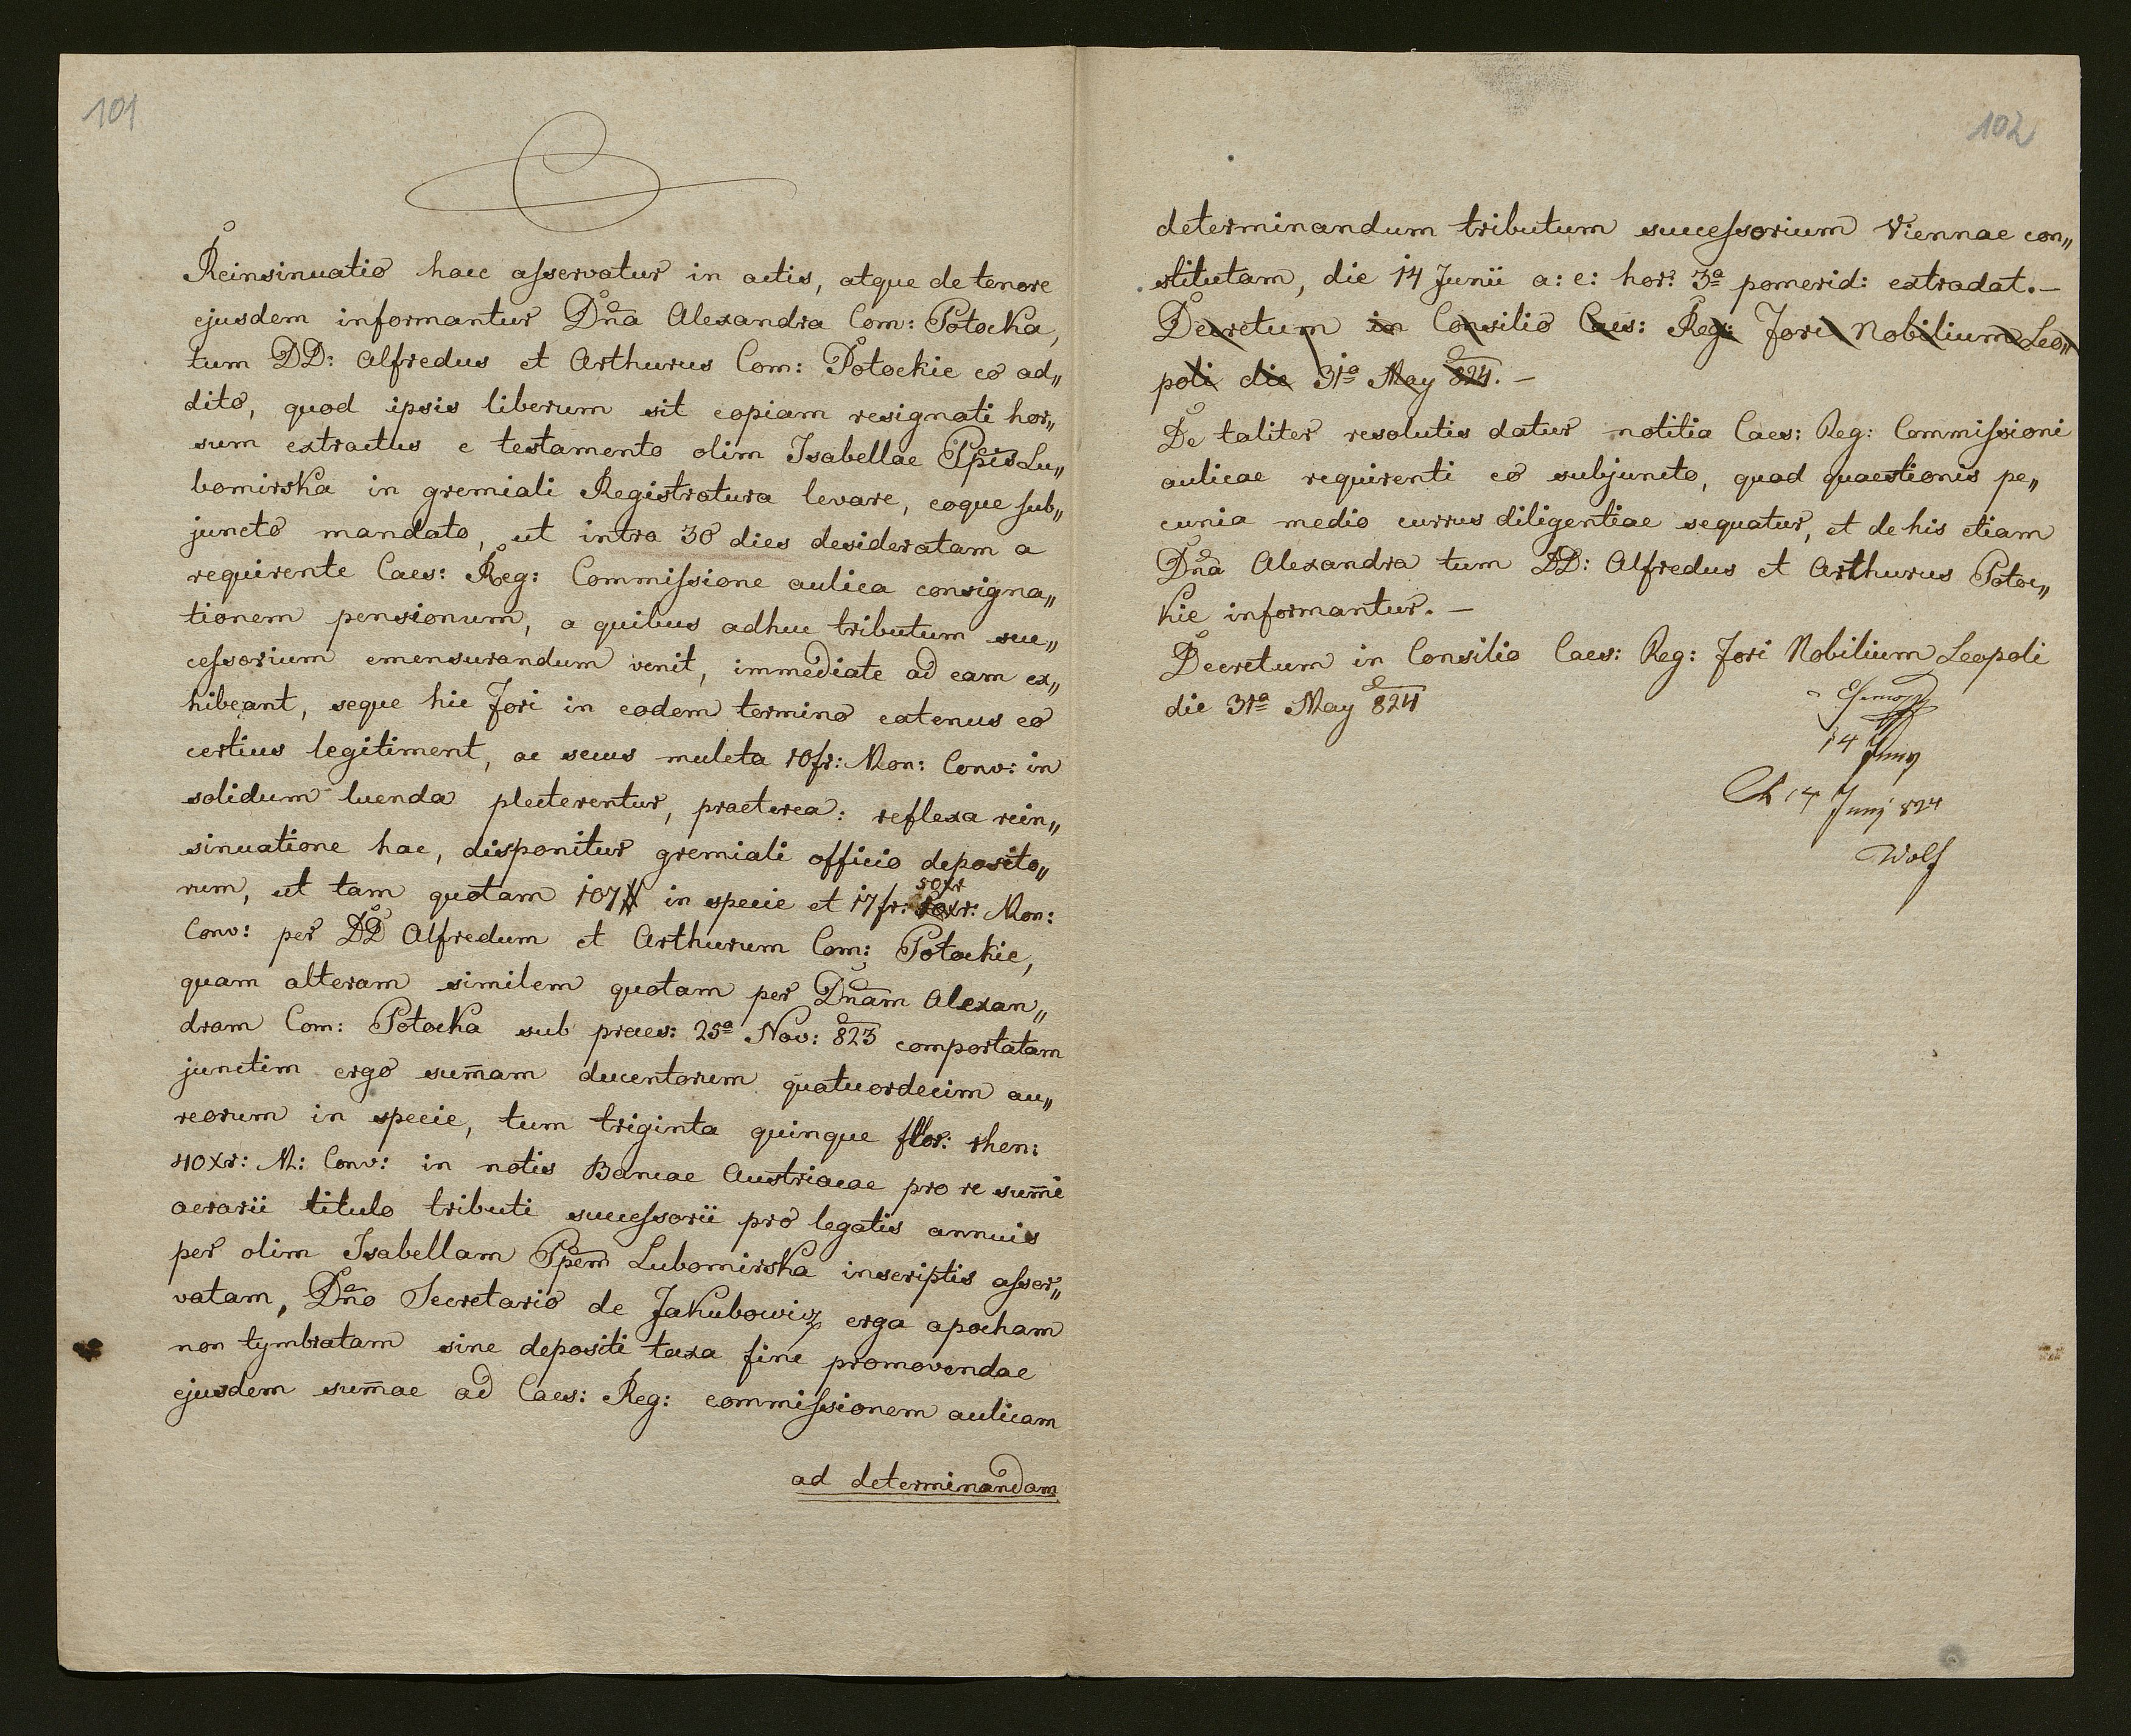 101
Reinsinuatio haec asservatur in actis, atque de tenore
ejusdem informantur Dna Alexandra Com: Potocka,
tum DD: Alfredus et Arthurus Com: Potockie eo ad„
dito, quod ipsis liberum sit copiam resignati hor„
sum extractus e testamento olim Isabellae Ppis Lu„
bomirska in gremiali Registratura levare, eoque sub„
juncto mandato, ut intra 30 dies desideratam a
requirente Caes: Reg: Commissione aulica consigna„
tionem pensionum, a quibus adhuc tributum suc„
cessorium emensurandum venit, immediate ad eam ex„
hibeant, seque hic Fori in eodem termino eatenus eo
certius legitiment, ac secus mulcta 10 fr: Mon: Conv: in
solidum luenda plecterentur, praeterea: reflexa rein„
sinuatione hac, disponitur gremiali officio deposito„
rum, ut tam quotam 107 # in specie et 17 fr: 50 xr Mon:
Conv: per DD Alfredum et Arthurum Com: Potockie,
quam alteram similem quotam per Dnam Alexan„
dram Com: Potocka sub praes: 25a Nov: 823 comportatam
junctim ergo sum̄am ducentorum quatuordecim au„
reorum in specie, tum triginta quinque flor: rhen:
40 xr: M: Conv: in notis Bancae Austriacae pro re sum̄i
aerarii titulo tributi successorii pro legatis annuis
per olim Isabellam Ppem Lubomirska inscriptis asser„
vatam, Dno Secretario de Jakubowicz erga apocham
non tymbratam sine depositi taxa fine promovendae
ejusdem sum̄ae ad Caes: Reg: commissionem aulicam
ad determinandam
102
determinandum tributum successorium Viennae con„
stitutam, die 14 Junii a: c: hor: 3a pomerid: extradat. —
Decretum in Consilio Caes: Reg: Fori Nobilium Leo„
poli die 31a May 824. —
De taliter resolutis datur notitia Caes: Reg: Commissioni
aulicae requirenti eo subjuncto, quod quaestionis pe„
cunia medio currus diligentiae sequatur, et de his etiam
Dna Alexandra tum DD: Alfredus et Arthurus Potoc„
kie informantur. —
Decretum in Consilio Caes: Reg: Fori Nobilium Leopoli
die 31a May 824
14 Juny
14 Juny 824
Wolf